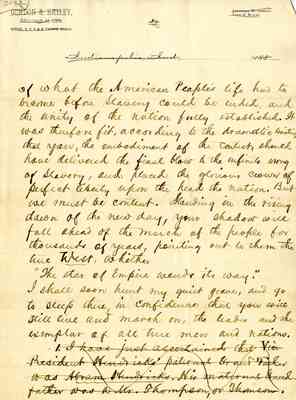 GORDON & BAILEY,
Indianapolis, Ind.
188
of what the American People's life had to
become before slavery could be ended, and
the unity of the nation fully established. It
was therefore fit, according to the dramatic unities
that you, the embodiment of the contest, should
have delivered the final blow to the infinite wrong
of Slavery, and placed the glorious crown of
perfect liberty upon the head the nation. But
we must be content. Standing in the rising
dawn of the new day, your shadow will
fall ahead of the march of the peoples for
thousands of years, pointing out to them the
true West, whither
"The star of Empire wends its way."
I shall soon hunt my quiet grave, and go
to sleep there, in confidence that you will
still live and march on, the leader and the
exemplar of all true men and nations.
I have just ascertained that Vice
President Hendricks' paternal Grand Father
was Abram Hendricks. His maternal Grand
father was a Mr. Thompson, or Thomson.